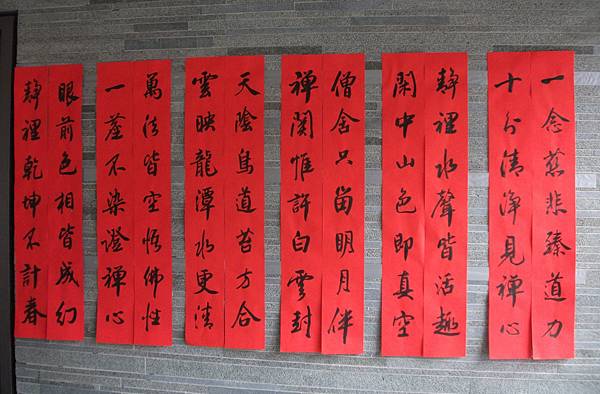 一念慈悲臻道力
十分清淨見禪心
靜裡水聲皆活趣
閑中山色即真空
僧舍只留明月伴
禪關惟許白雲封
天陰鳥道苔方合
雲映龍潭水更清
萬法皆空悟佛性
一塵不染證禪心
眼前色相皆成幻
靜裡乾坤不計春